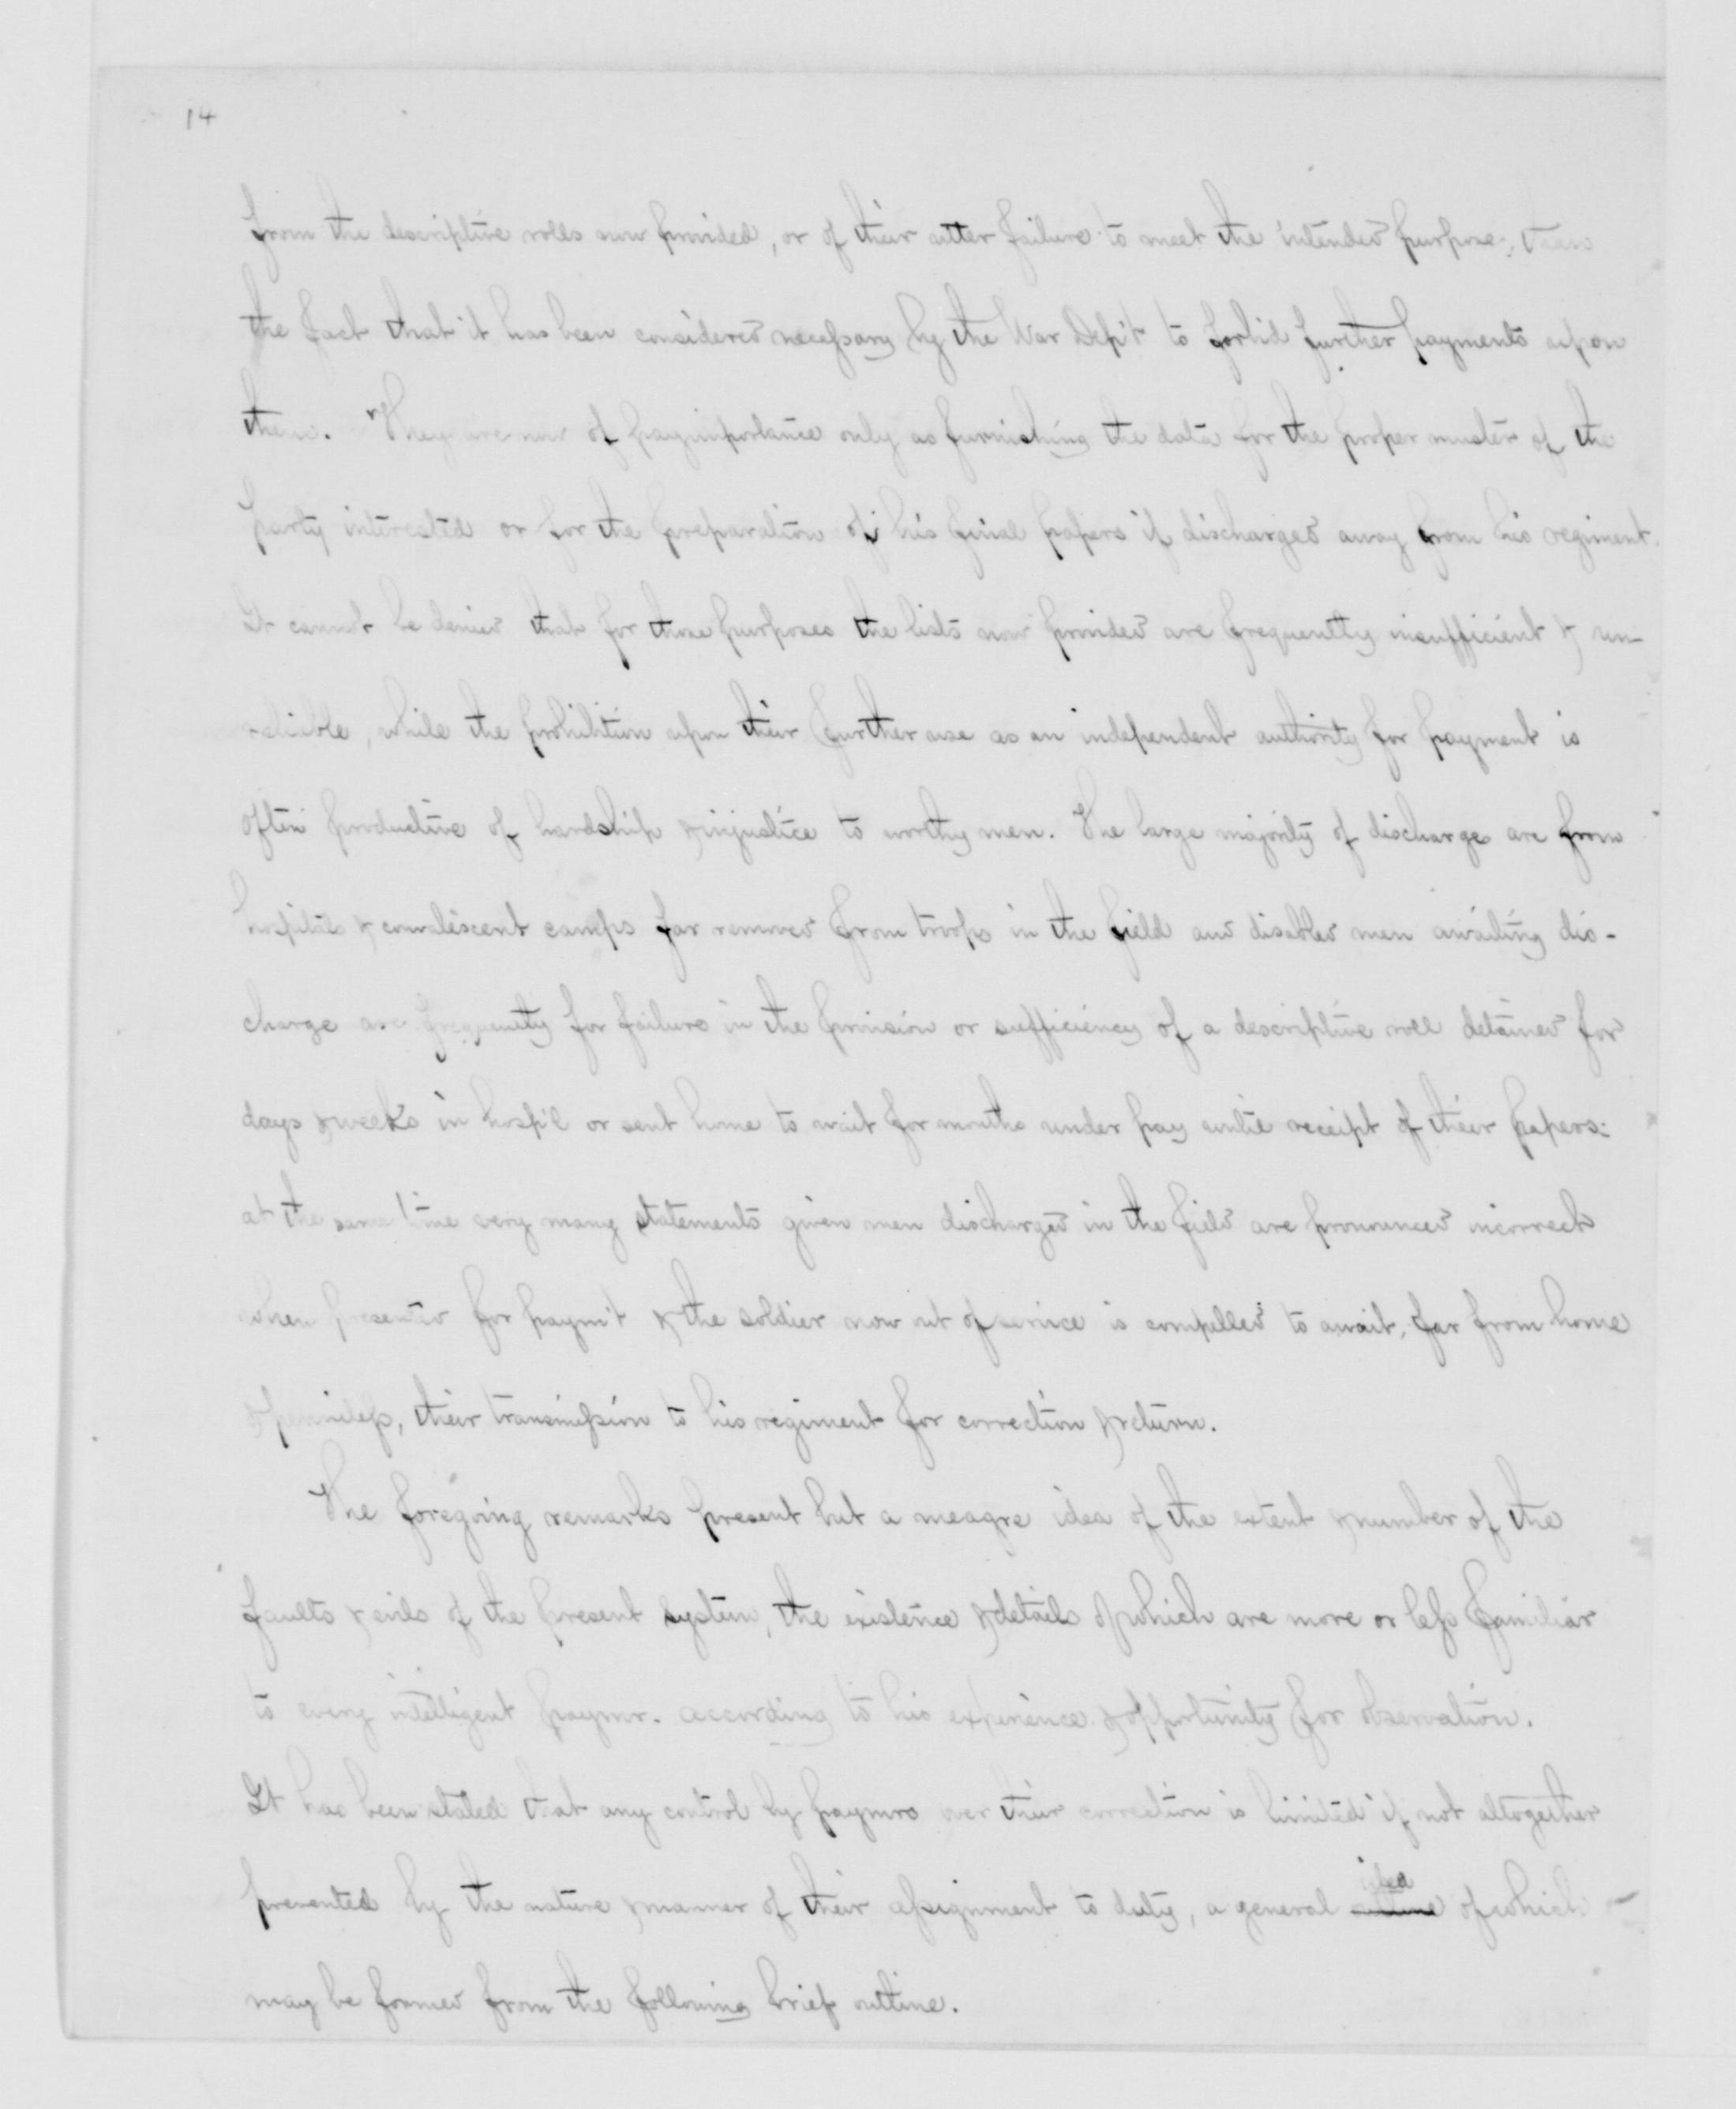 14
from the descriptive rolls now provided, or of their utter failure to meet the intended purpose; than
the fact that it has been considered necessary by the War Dep't to forbid further payments upon
them. They are now of pay importance only as furnishing the data for the proper muster of the
party interested or for the preparation of his final papers if discharged away from his regiment.
It cannot be denied that for those purposes the lists now provided are frequently insufficient & un-
reliable, while the prohibition upon their further use as an independent authority for payment is
often productive of hardship & injustice to worthy men. The large majority of discharges are from
hospitals & convalescent camps far removed from troops in the field and disabled men awaiting dis-
charge are frequently for failure in the provision or sufficiency of a descriptive roll detained for
days & weeks in hosp'l or sent home to wait for months under pay until receipt of their papers:
at the same time very many statements given men discharged in the field are pronounced incorrect
when presented for paym't & the soldier now out of service is compelled to await, far from home
& penniless, their transmission to his regiment for correction & return.
The foregoing remarks present but a meagre idea of the extent & number of the
faults & evils of the present system, the existence & details of which are more or less familiar
to every intelligent paymr. according to his experience & opportunity for observation.
It has been stated that any control by paymrs over their correction is limited if not altogether
prevented by the nature & manner of their assignment to duty, a general outline idea of which
may be formed from the following brief outline.